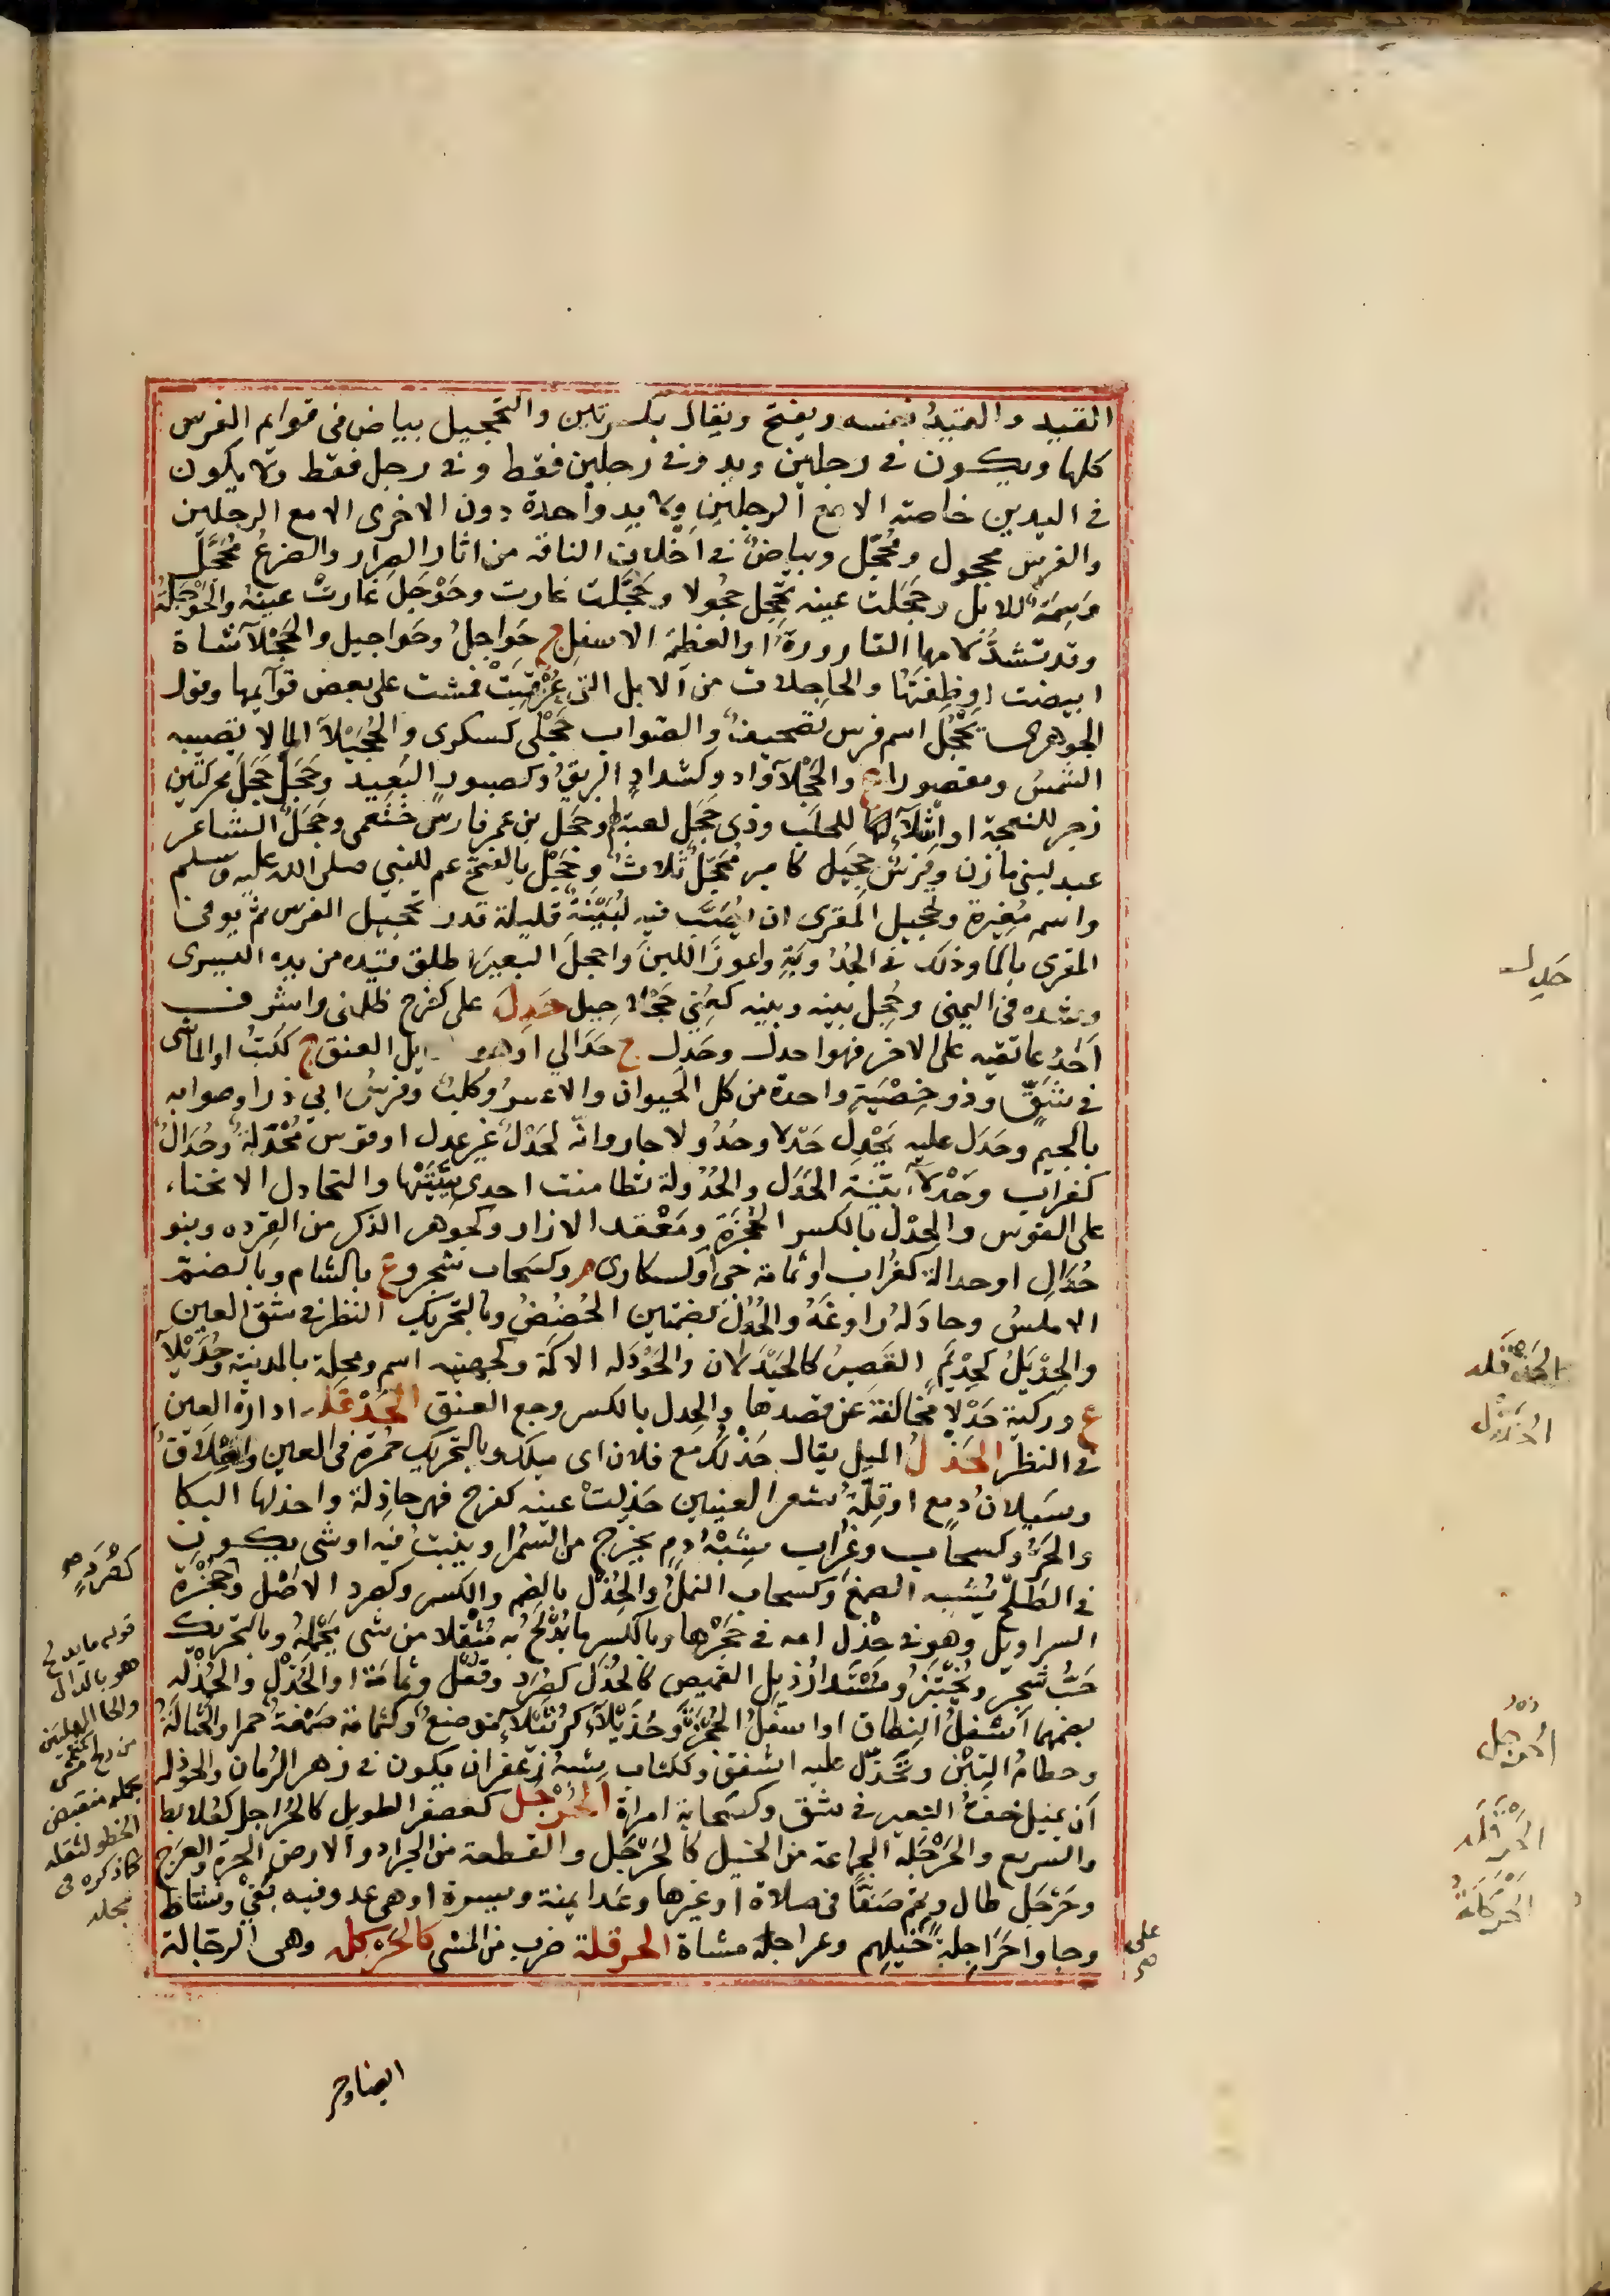 القيد والقيد نفسه ويفتح ويقال بكسرتين والتحجيل بياض فى قوايم الفرس
كلها ويكون فى رجلين ويد وفى رجلين فقط وفى رجل فقط ولا يكون
فى اليدين خاصة الا مع الرجلين ولا يد واحدة دون الاخرى الا مع الرجلين
والفرس محجول ومُحَجَّل وبياضٌ فى اخلاف الناقة من اثار الصرار والضرعُ مُحَجَّل
وسِمَةٌ للابل وحجَلت عينه تحجِل حجولا وحجَّلت غارت وحَوْجَلَ غارتْ عينهُ والحَوْجَلَةُ
وقد تشدُّ لامها القارورةُ او العظيمة الاسفل ج حَواجلُ وحَواجيل والحَجْلآ شاة
ابيضت اوظِفَتها والحاجلات من الابل التى عُرْقِبَتْ فمشت على بعض قوآيمها وقول
الجوهرى تَحْجُل اسم فرس تصحيفٌ والصواب عَجْلَى كسكرى والحُجَيْلآ الما لا تصيبه
الشمسُ ومقصورا ع والحَجْلآ وَادٍ وكشدادٍ البريقُ وكصبور البَعِيد وحَجَل حَجَل محركتين
زجر للنعجة او اِشْلآءٌ لها للحلَب وذى حَجَل لعبة لهم وحَجَل بن عمر فارس خثعمى وحَجَلٌ الشاعر
عبد لبنى مازن وفرس حَجِيل كامير مُحَجَّلُ ثلاثٌ وحَجْل بالفتح عم للنبى صلى الله عليه وسلم
واسمه مُغِيرة وتحجيل المقرى ان يُصَبَّ فيه لُبَيْنَةٌ قليلة قدر تحجيل الفرس ثم يُوفى
المقرى بالما وذلك فى الجُدُوبَةِ واعواز اللبن واحجلَ البعيرَ اطلق قيده من يده اليسرى
وشده فى اليمنى وحُجِلَ بينه وبينه كعُنِى حَجْلا حيل حَدِلَ على كفرح ظلمنى واشرف
اَحَدُ عاتقيه على الاخر فهو احدل وحَدِل ج حَدَالى او هو مايل العنق ج ككُتبٌ او الماشى
فى شَقٍّ وذو خِصْيَةٍ واحدة من كل الحيوان والاعسرُ وكلبٌ وفرسُ ابى ذر او صوابه
بالجيم وحَدَل عليه يَحْدِل حَدْلا وحُدُولا جار وانّه لَحَدْلٌ غير عدل او قوس مُحْدَلةٌ وحُدَالٌ
كغراب وحَدْلآء بَيّنة الحَدَل والحُدُولة تطامنت احدى سِيَتَيْها والتحادل الانحناء
على القوس والحِدْل بالكسر الحُجْزَة ومَعْقد الازار وكجوهر الذكر من القِرده وبنو
حُدَال او حدالة كغُراب او ثمامة حى اولسكارى م وكسحاب شجر وع بالشام وبالضم
الاملسُ وحادَلهُ راوغَهُ والحُدُل بضمتين الحُضُضُ وبالتحريك النظر فى شق العين
والحِدْيَلُ كحِذْيَمٍ القَصِيرُ كالحَيْدَلان والحَوْدَله الاكمَة وكجهينه اسم ومحلة بالمدينة وحُدَيْلآ
ع وركية حَدْلا مخالفة عن قصدها والحِدل بالكسر وجع العنق الحَدْقله ادارة العين
فى النظر الحَذْلُ الميل يقال حَذْلُكَ مع فلان اى ميلك وبالتحريك حُمرة فى العين وانْسِلَاقٌ
وسَيلانُ دمع او قِلّةُ شعر العينين حَذِلتْ عينه كفرح فهى حاذِلة واحذلها البكا
والحَرّ وكسحاب وغُراب شِبْهُ دمٍ يخرج من السَمُر او ينبتُ فيه او شى يكون
فى الطَلح يشبه الصمغ وكسحاب النملُ والحُذْل بالضم والكسر وكصرد الاصْل وحُجْزَة
السراويل وهو فى حِذْل امه فى حَجْرها وبالكسر ما يُدْلَحُ به مُثْقلا من شى تحْمِلهُ وبالتحريك
حَبُّ شجر ويُخْتَبَزُ ومُسْتَدارُ ذيل القميص كالحُذَل كصُرَدٍ وقُفْل وثمامَة او الحُذْلُ والحُذْلَه
بضمهما اَسْفلُ النِطاق او اسفلُ الحُجْزَةِ وحُذَيْلَآء كرُتَيْلَآء موضعٌ وكثمامة صَمْغةٌ حمرا والحُثَالةُ
وحطامُ التِبْن وتَحَذَّل عليه اشفقَ وككتاب شبهُ زعفران يكون فى زهر الرُمان والحَوْذله
اَن يميل خفُّ البعير فى شق وكسَحابة امراة الحُرْجُل كعصفر الطويل كالحُراجل كعُلابط
والسريع والحَرْجَلة الجماعة من الخيل كالحَرْجَل والقطعة من الجراد والارض الحرة والعَرَج
وحَرْجَل طال وتمم صَفًّا فى صلاة او غيرها وعَدا يمنة ويسرة او هى عدو فيه بَغْى ونشاط
وجاوا حَرَاجِلةً خيلهم وعراجله مشاة الحرقلة ضرب من المشى كالحَرْكله وهى الرجالة
ايضا وحر
على
حَدِل
الحَدْقَله
الحَذْل
الحُرْجُل
الحَرْقَله
الحَرْكَلةُ
كصُرَدٍ
قوله ما يدلح
هو بالدال
والحا المهملتين
من دلح اى مشى
بحمله منقبض
الخطو لثقله
كما ذكره فى
محله